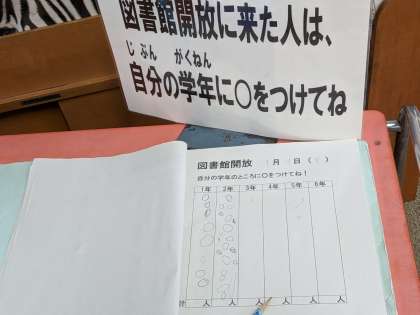 図書館開放に来た人は、
じぶん がくねん
自分の学年に○をつけてね
図書館開放 月 日( )
自分の学年のところに○をつけてね!
1年 2年 3年 4年 5年 6年
人 人 人 人 人 人